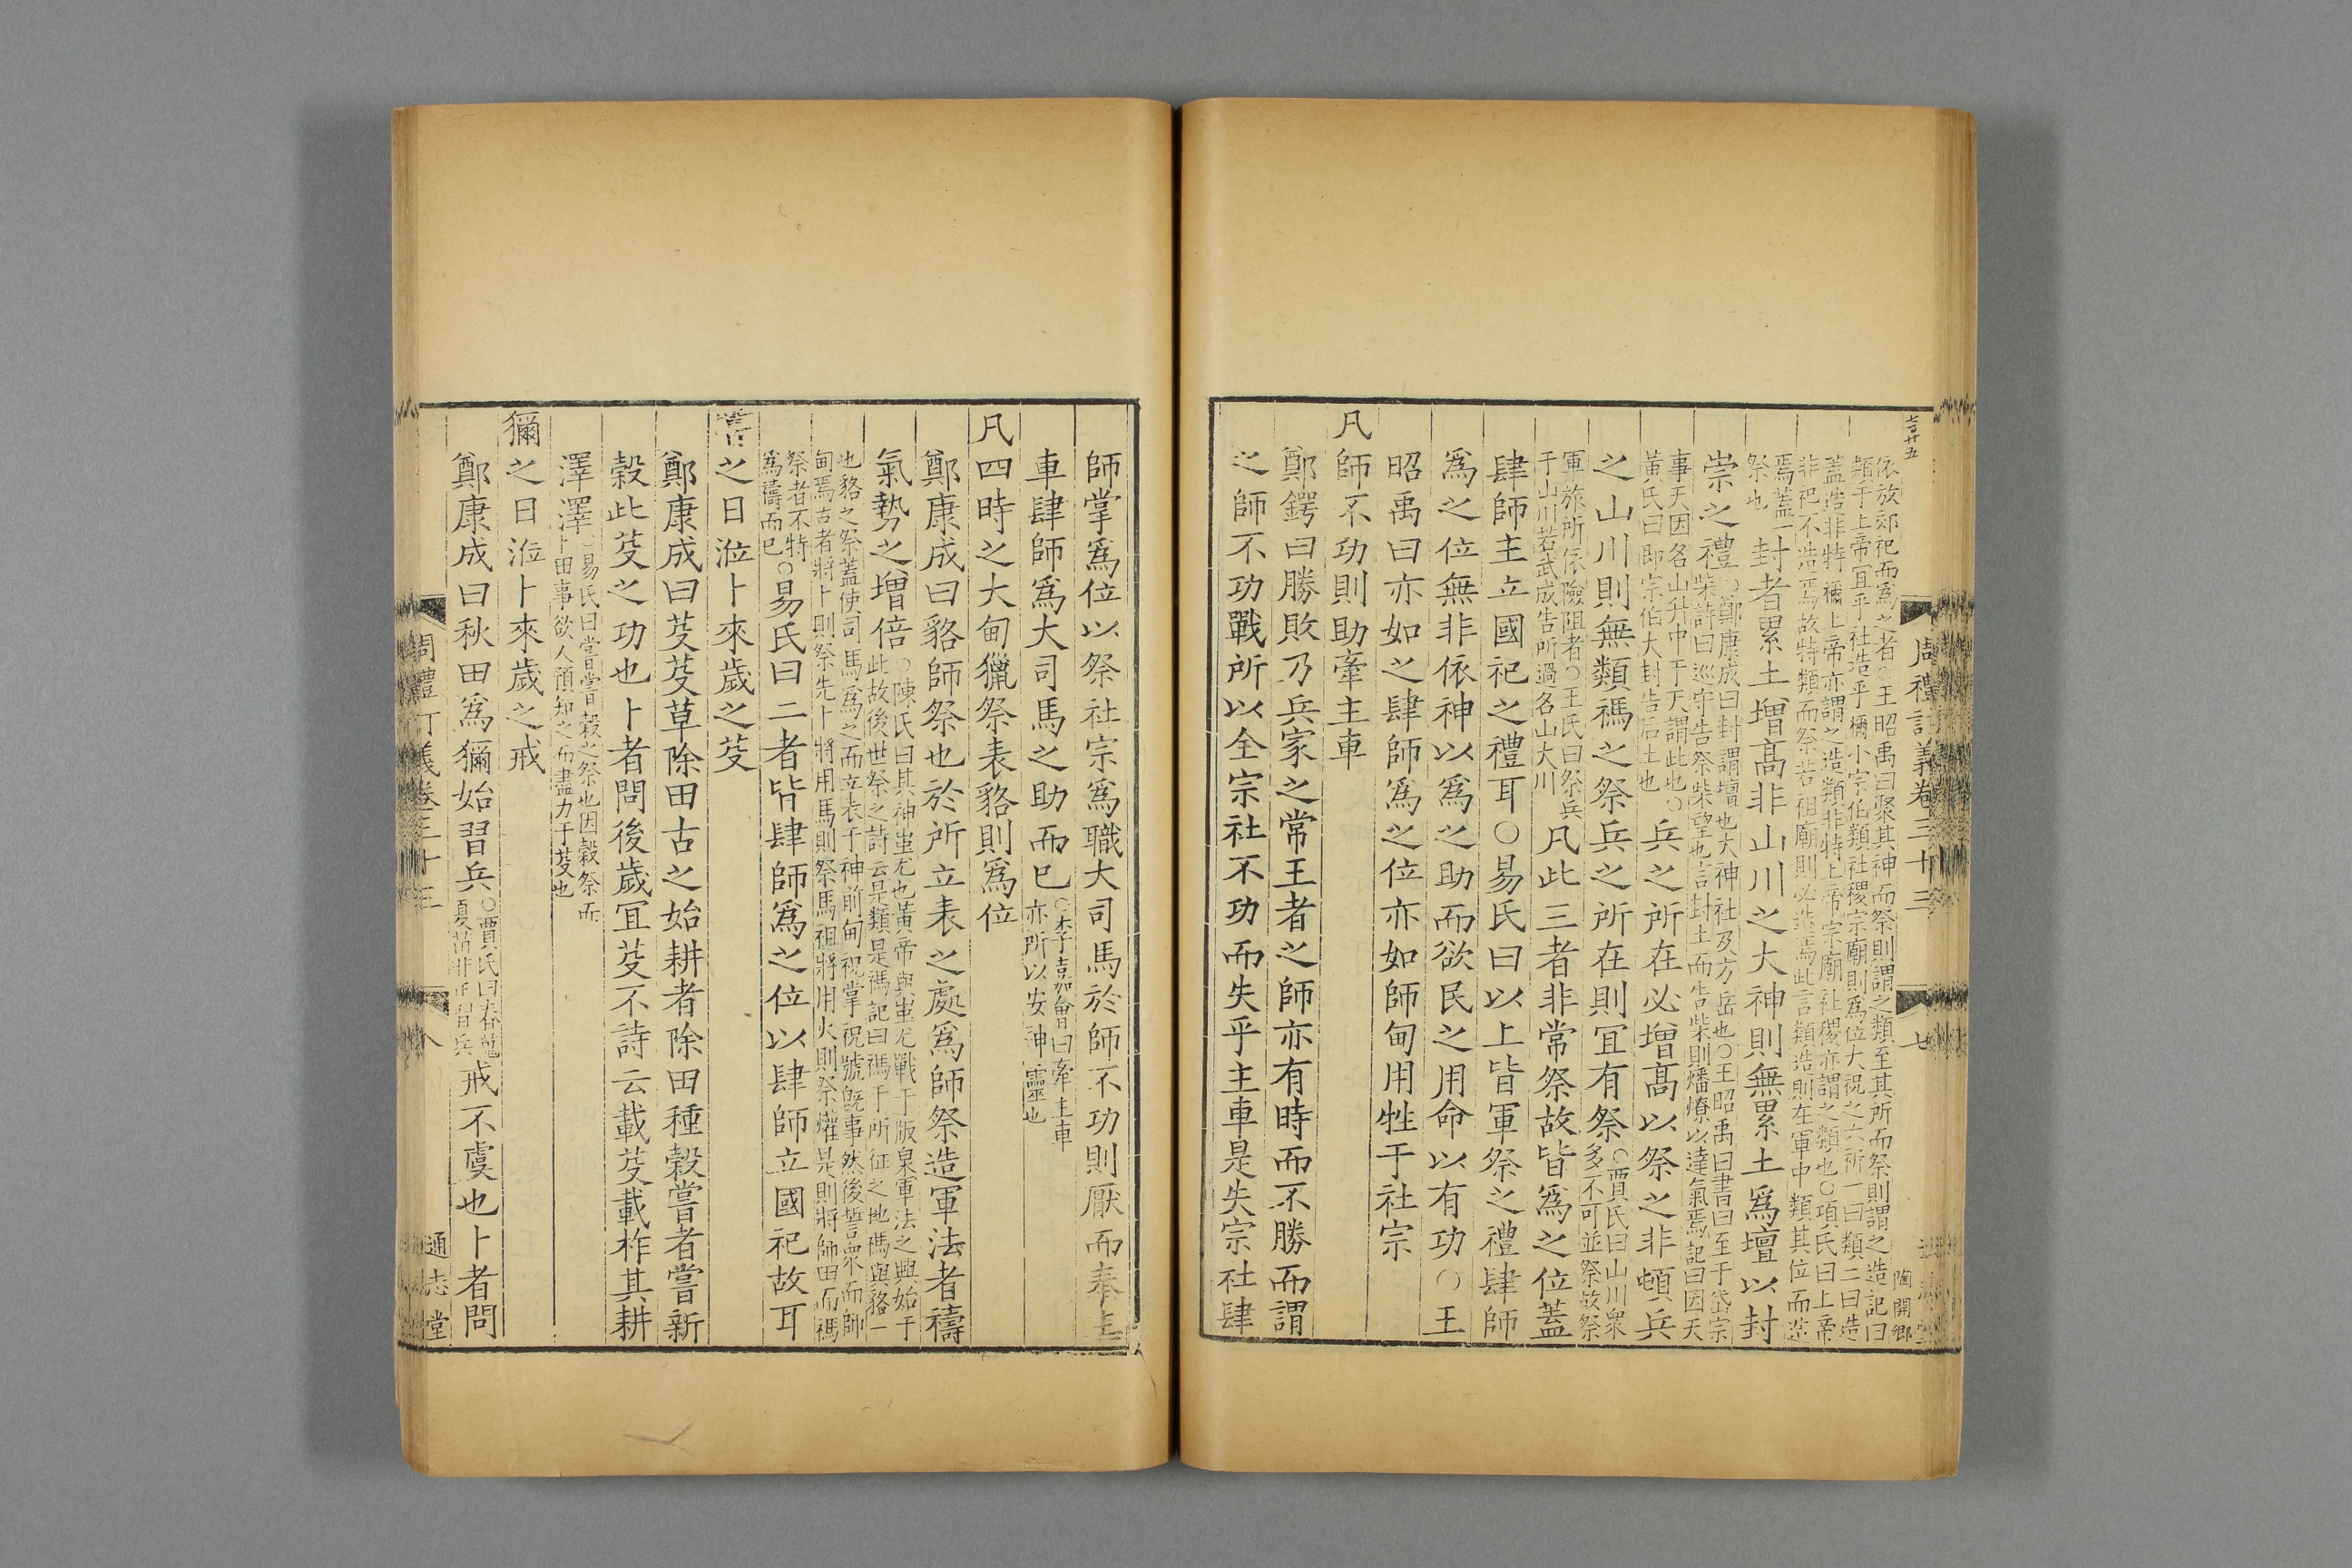 七百廿五
周禮訂義卷三十三
七
陶開鄉
依放郊祀而爲之者○王昭禹曰聚其神而祭則謂之類至其所而祭則謂之造記曰
類于上帝宜乎社造乎禰小宗伯類社稷宗廟則爲位大祝之六祈一曰類二曰造
蓋造非特禰上帝亦謂之造類非特上帝宗廟社稷亦謂之類也○項氏曰上帝
非祀不造焉故特類而祭若祖廟則必造焉此言類造則在軍中類其位而造
焉蓋一
祭也
封者累土增高非山川之大神則無累土爲壇以封
崇之禮
○鄭康成曰封謂壇也大神社及方岳也○王昭禹曰書曰至于岱宗
柴詩曰巡守告祭柴望也言封土而告柴則燔燎以達氣焉記曰因天
事天因名山升中于天謂此也○
黃氏曰即宗伯大封告后土也
兵之所在必增高以祭之非頓兵
之山川則無類禡之祭兵之所在則宜有祭
○賈氏曰山川衆
多不可並祭故祭
軍旅所依險阻者○王氏曰祭兵
于山川若武成告所過名山大川
凡此三者非常祭故皆爲之位蓋
肆師主立國祀之禮耳○易氏曰以上皆軍祭之禮肆師
爲之位無非依神以爲之助而欲民之用命以有功○王
昭禹曰亦如之肆師爲之位亦如師甸用牲于社宗
凡師不功則助牽主車
鄭鍔曰勝敗乃兵家之常王者之師亦有時而不勝而謂
之師不功戰所以全宗社不功而失乎主車是失宗社肆
師掌爲位以祭社宗爲職大司馬於師不功則厭而奉主
車肆師爲大司馬之助而已
○李嘉會曰牽主車
亦所以安神靈也
凡四時之大甸獵祭表貉則爲位
鄭康成曰貉師祭也於所立表之處爲師祭造軍法者禱
氣勢之增倍
○陳氏曰其神蚩尤也黃帝與蚩尤戰于版泉軍法之興始于
此故後世祭之詩云是類是禡記曰禡于所征之地禡與貉一
也貉之祭蓋使司馬爲之而立表于神前甸祝掌祝號旣事然後誓衆而師
甸焉古者將卜則祭先卜將用馬則祭馬祖將用火則祭爟是則將師田而禡
祭者不特
爲禱而已
○易氏曰二者皆肆師爲之位以肆師立國祀故耳
嘗之日涖卜來歲之芟
鄭康成曰芟芟草除田古之始耕者除田種穀嘗者嘗新
穀此芟之功也卜者問後歲宜芟不詩云載芟載柞其耕
澤澤
○易氏曰嘗嘗穀之祭也因穀祭而
卜田事欲人預知之而盡力于芟也
獮之日涖卜來歲之戒
鄭康成曰秋田爲獮始習兵
○賈氏曰春蒐
夏苗非正習兵
戒不虞也卜者問
周禮訂義卷三十三
八
通志堂